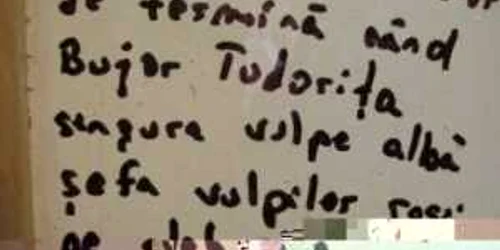 se termină când
Bujor Tudorița
singura vulpe albă
șefa vulpilor roși
pe